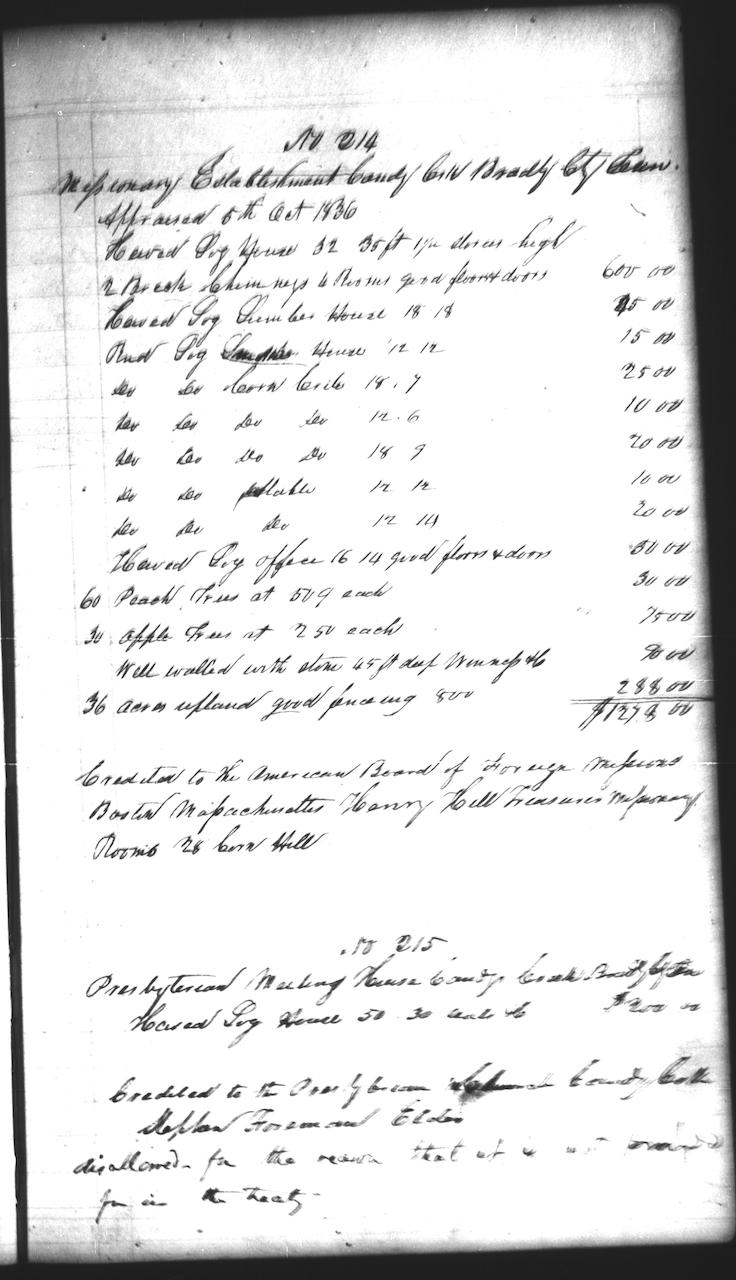 No 214
Missionary Establishment Candy Crk Bradly Cty Tenn.
Appraised 5th Oct 1836
Hewed Log House 32 35 ft 1½ stories high
2 Breck Chimneys 6 Rooms good floors & doors 600 00
Hewed Log Lumber House 18 18 45 00
Rnd Log House 12 12 15 00
Do Do Corn Crib 18. 7 25 00
Do Do Do Do 12. 6 10 00
Do Do Do Do 18 9 20 00
Do Do stable 12 12 10 00
Do Do Do 12 14 20 00
Hewed Log office 16 14 good floors & doors 50 00
60 Peach Trees at 50¢ each 30 00
30 apple Trees at 2 50 each 75 00
Well walled with stone 45 ft deep &c 90 00
36 acres upland good fencing 800 288 00
$1278 00
Credited to the American Board of Foreign Missions
Boston Massachusettes Henry Hill Treasurer Missionary
Rooms 28 Corn Hill
No 215
Presbyterian Meeting House Candy Creek Bradly Cty Ten
Hewed Log House 50 30 seats &c $200 00
Credited to the Presbyterian Candy Crk
Stephen Foreman Elder
disallowed for the reason that it is not provided
for in the treaty